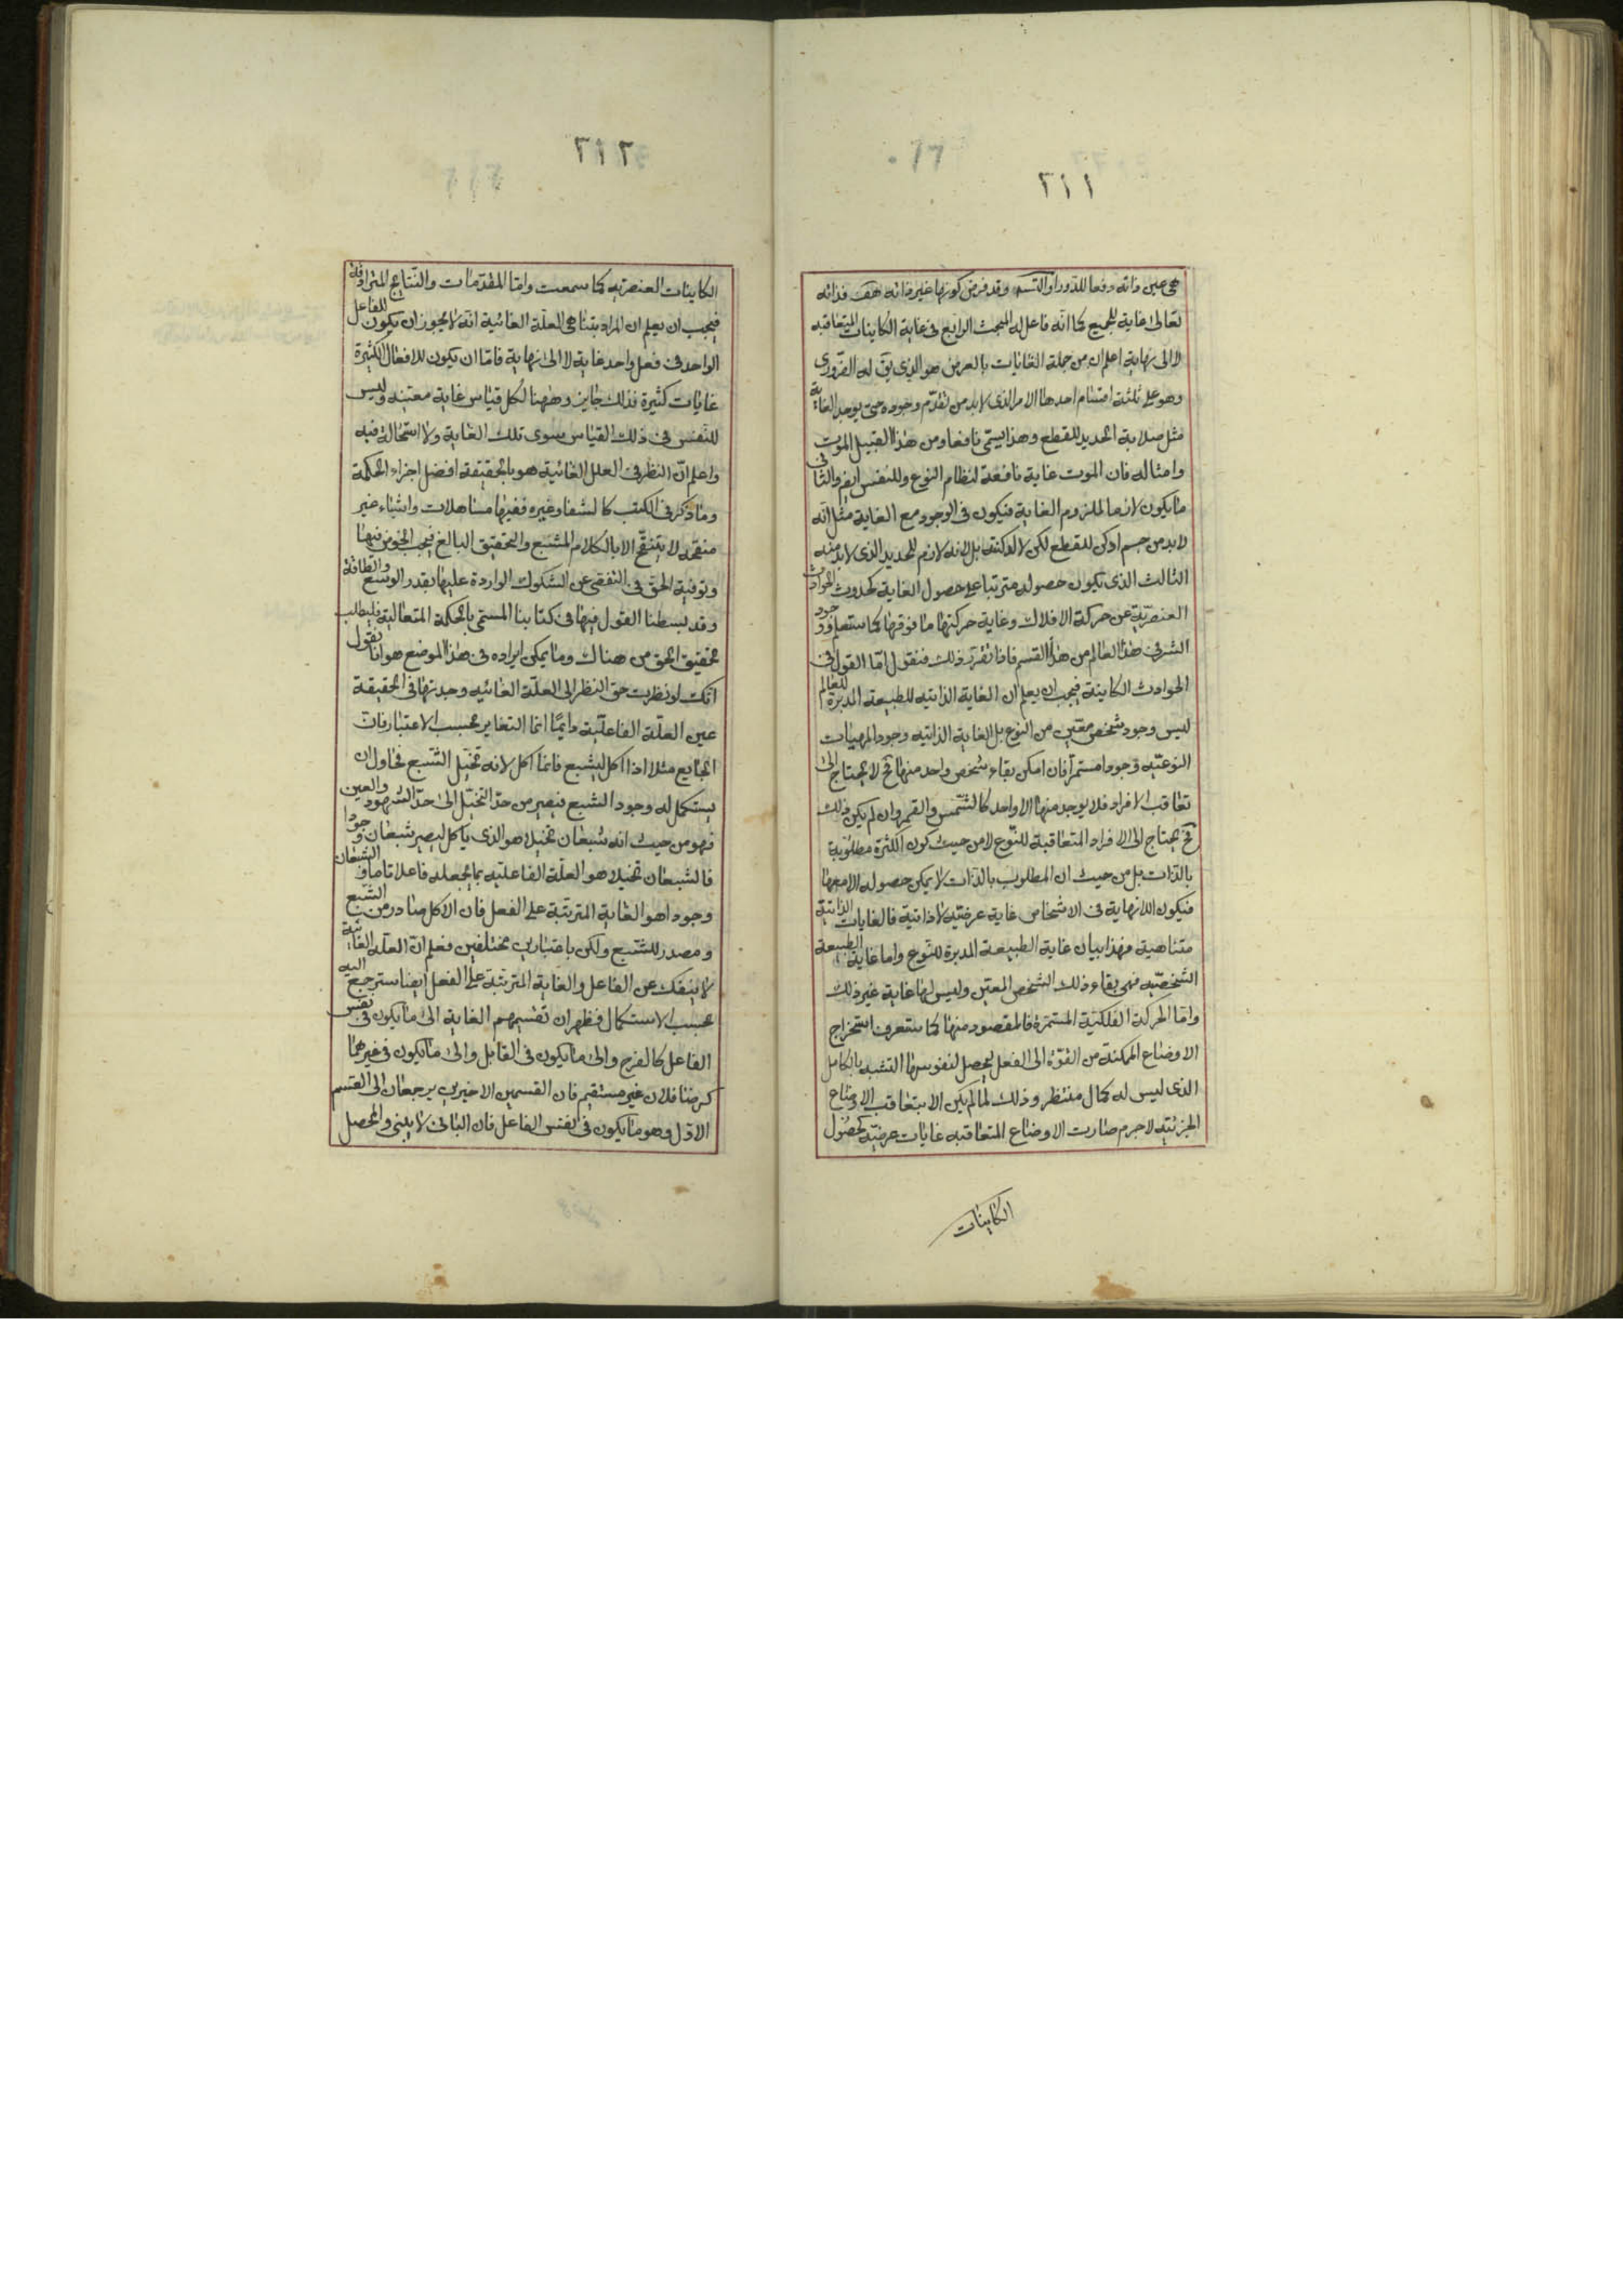 ٢١١
هى عين ذاته دفعا للدور او التسه وقد فرض كونها غير ذاته هف فذاته
تعالى غاية للجميع كما انّه فاعل له المبحث الرابع فى غاية الكاينات المتعاقبه
لا الى نهاية اعلم ان من جملة الغايات بالعرض هو الذى يق له الضرورى
وهو على ثلثة اقسام احدها الامر الذى لابد من تقدّم وجوده حتى يوجد الغاية
مثل صلابة الحديد للقطع وهذا يسمّى نافعا ومن هذا القبيل الموت
وامثاله فان الموت غاية نافعة لنظام النوع وللنفس ايضا والثانى
ما يكون لازما لملزوم الغاية فيكون فى الوجود مع الغاية مثل انّه
لابد من جسم ادكن للقطع لكن لا لدكنته بل لانه لازم للحديد الذى لابد منه
الثالث الذى يكون حصوله مترتبا على حصول الغاية كحدوث الحوادث
العنصريّة عن حركة الافلاك وغاية حركتها ما فوقها كما ستعلم ووجود
الشر فى هذا العالم من هذا القسم فاذا تقرّر ذلك فنقول امّا القول فى
الحوادث الكاينة فيجب ان يعلم ان الغاية الذاتيه للطبيعة المدبرة للعالم
ليس وجود شخص معيّن من النوع بل الغاية الذاتيه وجود المهيات
النوعيّه وجودا مستمرّا فان امكن بقاء شخص واحد منها فح لا يحتاج الى
تعاقب الافراد فلا يوجد منها الا واحد كالشمس والقمر وان لم يكن ذلك
فح يحتاج الى الافراد المتعاقبة للنّوع لا من حيث كون الكثرة مطلوبة
بالذّات بل من حيث ان المطلوب بالذّات لا يمكن حصوله الا معها
فيكون اللانهاية فى الاشخاص غاية عرضيّه لا ذاتيّة فالغايات الذاتيّة
متناهية فهذا بيان غاية الطبيعة المدبرة للنّوع واما غاية الطبيعة
الشخصيّه فهى بقاء ذلك الشخص المعيّن وليس لها غاية غير ذلك
وامّا الحركة الفلكيّة المستمرّة فالمقصود منها كما ستعرف استخراج
الاوضاع الممكنة من القوّة الى الفعل ليحصل لنفوسها التشبه بالكامل
الذى ليس له كمال منتظر وذلك لما لم يكن الا بتعاقب الاوضاع
الجزئيّه لاجرم صارت الاوضاع المتعاقبه غايات عرضيّه كحصول
الكاينات
٢١٢
الكاينات العنصريه كما سمعت وامّا المقدّمات والنّتايج المترادفة
فيجب ان يعلم ان المراد بتناهى العلّة الغائية انّه لا يجوز ان يكون للفاعل
الواحد فى فعل واحد غاية لا الى نهاية فامّا ان يكون للافعال الكثيرة
غايات كثيرة فذلك جايز وههنا لكل قياس غاية معيّنه وليس
للنّفس فى ذلك القياس سوى تلك الغاية ولا استحالة فيه
واعلم انّ النظر فى العلل الغائية هو بالحقيقة افضل اجزاء الحكمة
وما ذكر فى الكتب كالشفا وغيره ففيها مساهلات واشياء غير
منقّحه لا يتنقّح الا بالكلام المشبع والتحقيق البالغ فيجب الخوض فيها
وتوفية الحقّ فى التفصّى عن الشكوك الواردة عليها بقدر الوسع والطاقة
وقد بسطنا القول فيها فى كتابنا المسمّى بالحكمة المتعالية فليطلب
تحقيق الحق من هناك وما يمكن ايراده فى هذا الموضع هو انّا نقول
انّك لو نظرت حق النظر الى العلّة الغائيه وجدتها فى الحقيقة
عين العلّة الفاعليّة دايمًا انما التغاير بحسب الاعتبار فان
الجايع مثلا اذا اكل ليشبع فانما اكل لانه تخيّل الشّبع فحاول ان
يستكمل له وجود الشبع فيصير من حدّ التخيّل الى حدّ الشهود والعين
فهو من حيث انه شبعان تخيلا هو الذى ياكل ليصير شبعان وجودا
فالشبعان تخيلا هو العلّة الفاعليّه بما يجعله فاعلا تاما والشبعان
وجودا هو الغاية المترتّبة على الفعل فان الاكل صادر من الشّبع
ومصدر للشّبع ولكن باعتبارين مختلفين فعلم انّ العلّه الغائية
لا ينفك عن الفاعل والغاية المترتبة على الفعل ايضا سترجع اليه
بحسب الاستكمال فظهر ان تقسيمهم الغاية الى ما يكون فى نفس
الفاعل كالفرح والى ما يكون فى القابل والى ما يكون فى غيرهما
كرضا فلان غير مستقيم فان القسمين الاخيرين يرجعان الى القسم
الاوّل وهو ما يكون فى نفس الفاعل فان البانى لا يبنى والمحصل